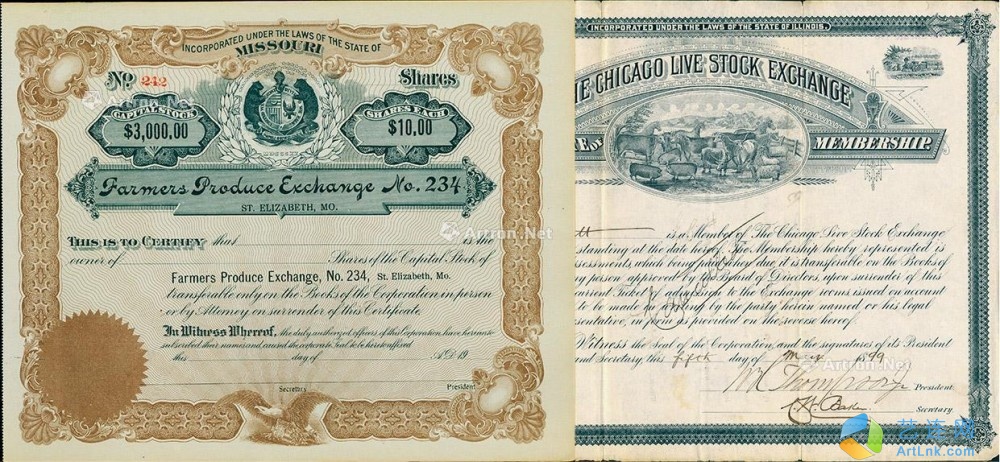 INCORPORATED UNDER THE LAWS OF THE STATE OF
MISSOURI
No 242
Shares
CAPITAL STOCK
$3,000.00
SHARES EACH
$10.00
Farmers Produce Exchange No. 234
ST. ELIZABETH, MO.
THIS IS TO CERTIFY that is the
owner of Shares of the Capital Stock of
Farmers Produce Exchange, No. 234, St. Elizabeth, Mo.
transferable only on the Books of the Corporation in person
or by Attorney on surrender of this Certificate.
In Witness Whereof, the duly authorized officers of this Corporation have hereunto
subscribed their names and caused the corporate Seal to be hereto affixed
this day of A.D. 19
Secretary
President
INCORPORATED UNDER THE LAWS OF THE STATE OF ILLINOIS.
HE CHICAGO LIVE STOCK EXCHANGE
E OF MEMBERSHIP.
tt is a Member of The Chicago Live Stock Exchange
standing at the date hereof. The Membership hereby represented is
ssessments, which being paid as they due, it is transferable on the Books of
y person approved by the Board of Directors, upon surrender of this
current Ticket of admission to the Exchange rooms issued on account
to be made in writing by the party herein named or his legal
sentative, in form as provided on the reverse hereof.
Witness the Seal of the Corporation, and the signatures of its President
nd Secretary, this fifth day of May 99
Wm Thompson Jr President
C. W. Baker Secretary
Artron.Net
Artron.Net
艺连网
ArtLnk.com